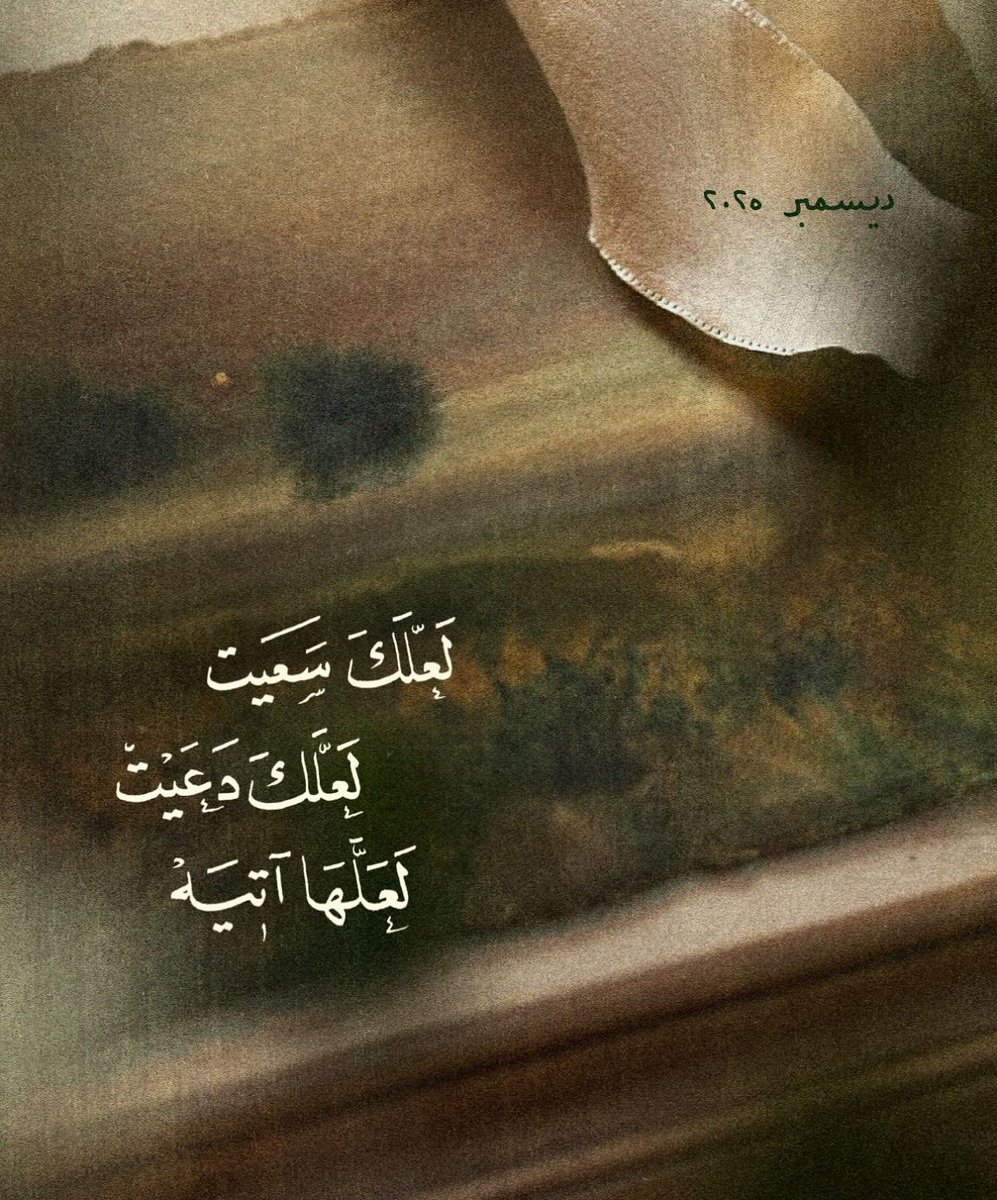 ديسمبر ٢٠٢٥
لَعَلَّكَ سَعَيت
لَعَلَّكَ دَعَيْتّ
لَعَلَّهَا آتِيَهْ